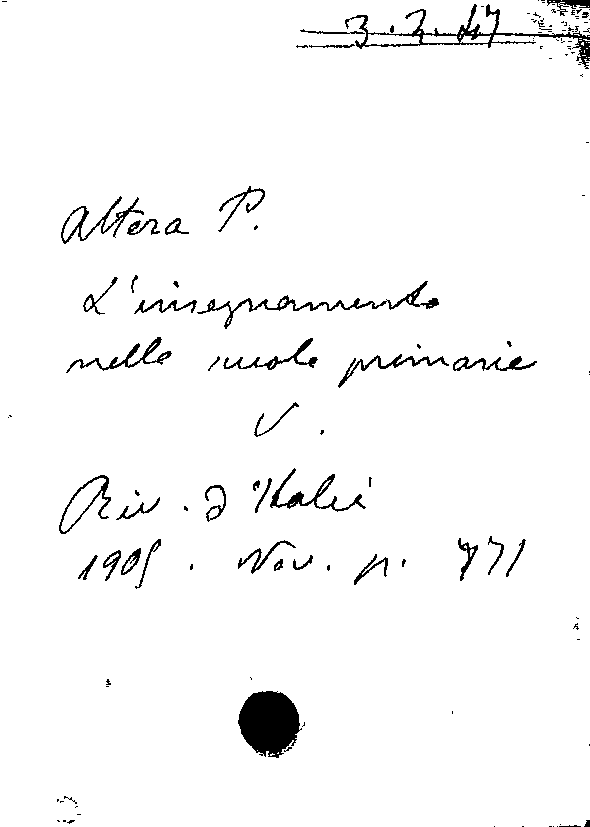 3.2.47
Altera P.
L'insegnamento
nelle scuole primarie
V.
Riv. d'Italia
1905. Nov. p. 771